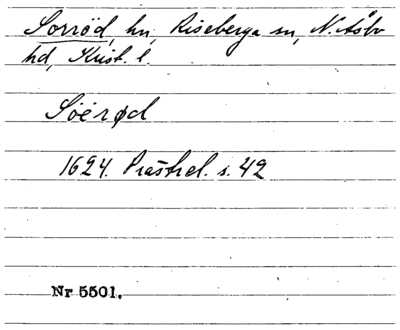 Sorröd, hn, Riseberga sn, N. Åsbo
hd, Krist. l.
Söërød
1624. Prästrel. s. 42
Nr 5501.